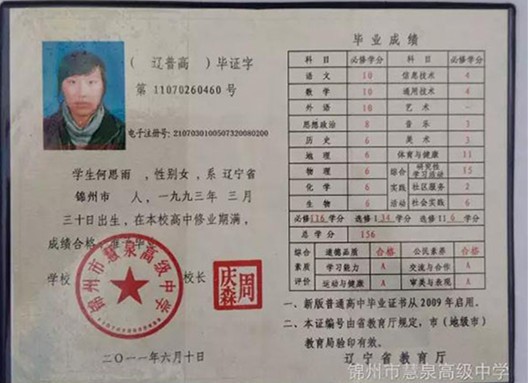 （ 辽普高 ）毕证字
第 11070260460 号
电子注册号: 2107030100507320080200
学生何思雨 ，性别女，系 辽宁省
锦州市 人，一九九三年 三月
三十日出生，在本校高中修业期满，
成绩合格，准予毕业
学校 校长
锦州市慧泉高级中学
周庆淼
二〇一一年六月十日
毕业成绩
科 目 必修学分 科 目 必修学分
语 文 10 信息技术 4
数 学 10 通用技术 4
外 语 10 艺 术 -
思想政治 8 音 乐 3
历 史 6 美 术 3
地 理 6 体育与健康 11
物 理 6 综合实践活动 研究性学习活动 15
化 学 6 社区服务 2
生 物 6 社会实践 6
必修 116 学分 选修Ⅰ 34 学分 选修Ⅱ 6 学分
总 学 分 156
综合素质评价 道德品质 合格 公民素养 合格
学习能力 A 交流与合作 A
运动与健康 A 审美与表现 A
一、新版普通高中毕业证书从 2009 年启用。
二、本证编号由省教育厅规定，市（地级市）
教育局验印有效。
辽宁省教育厅
锦州市慧泉高级中学